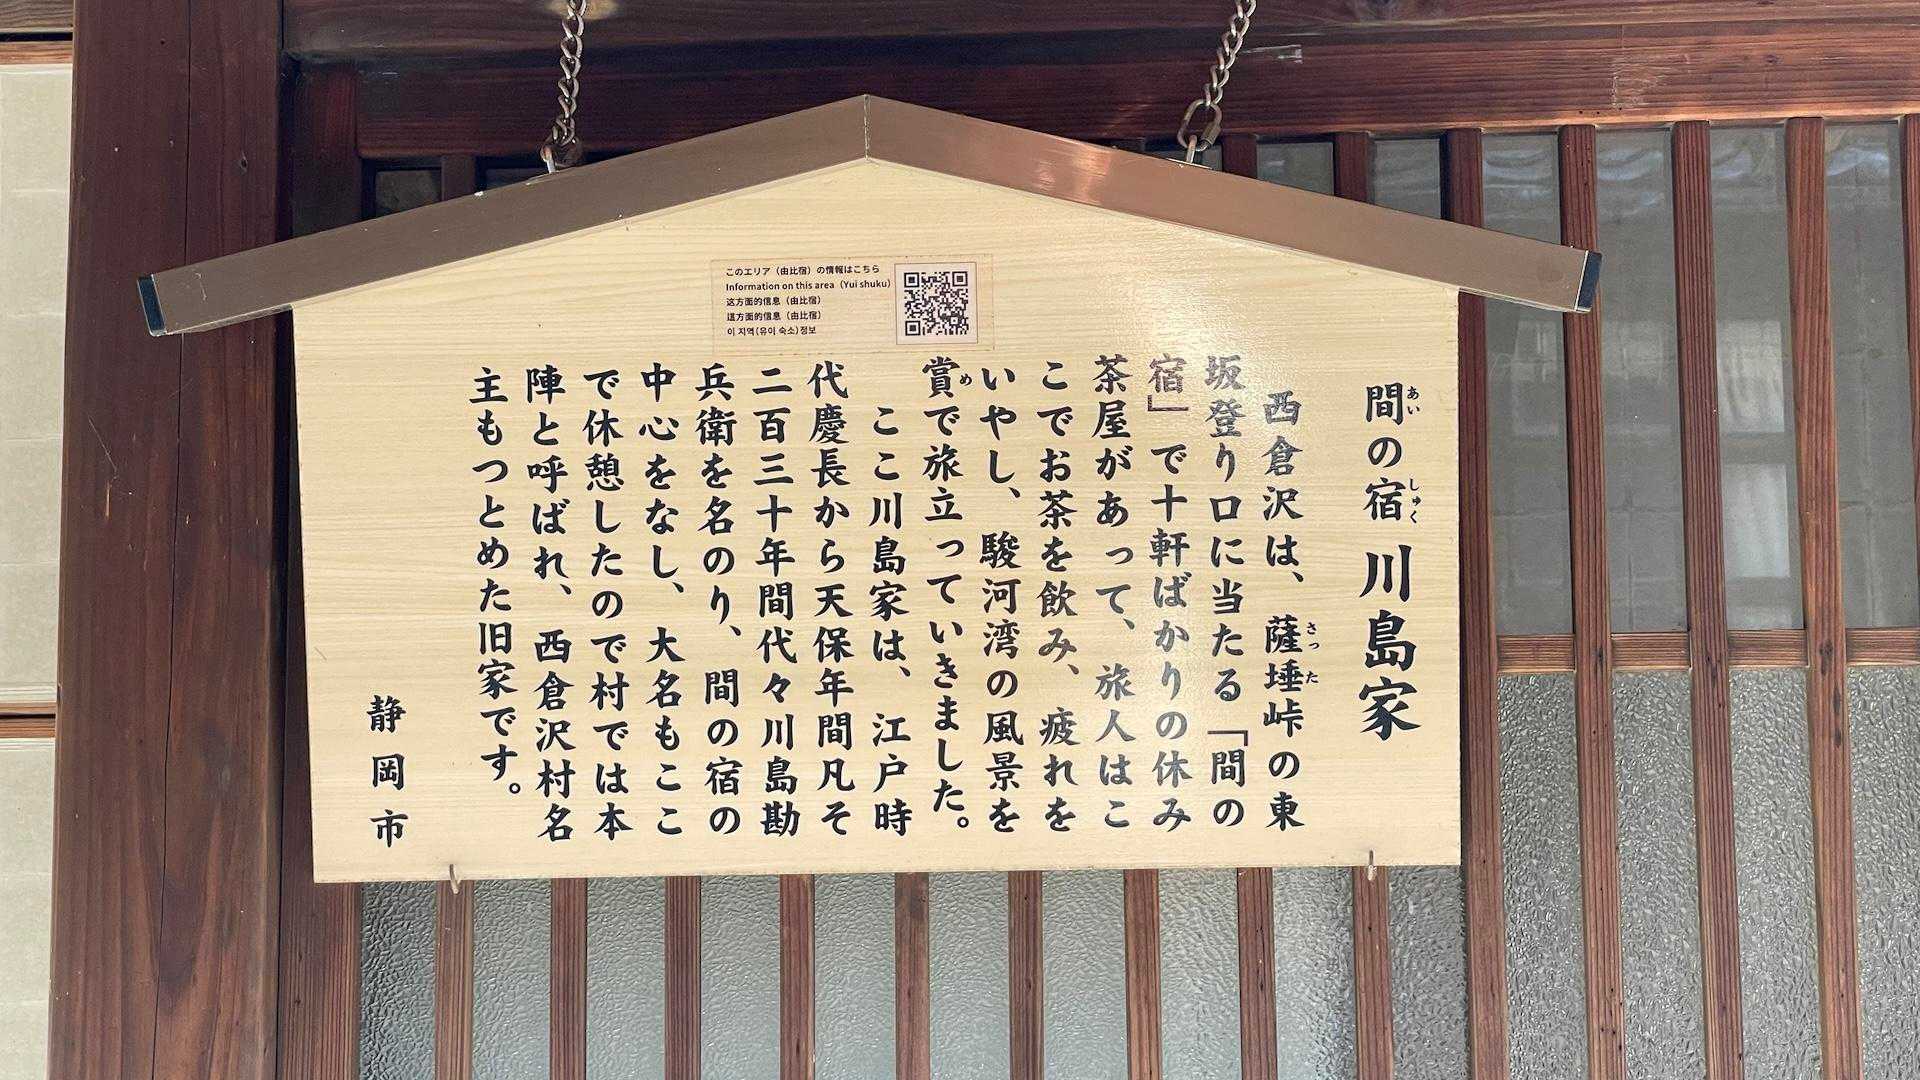 このエリア（由比宿）の情報はこちら
Information on this area（Yui shuku）
这方面的信息（由比宿）
這方面的信息（由比宿）
이 지역(유이 숙소)정보
間の宿 川島家
あい
しゅく
西倉沢は、薩埵峠の東
さった
坂登り口に当たる「間の
宿」で十軒ばかりの休み
茶屋があって、旅人はこ
こでお茶を飲み、疲れを
いやし、駿河湾の風景を
賞で旅立っていきました。
め
ここ川島家は、江戸時
代慶長から天保年間凡そ
二百三十年間代々川島勘
兵衛を名のり、間の宿の
中心をなし、大名もここ
で休憩したので村では本
陣と呼ばれ、西倉沢村名
主もつとめた旧家です。
静岡市